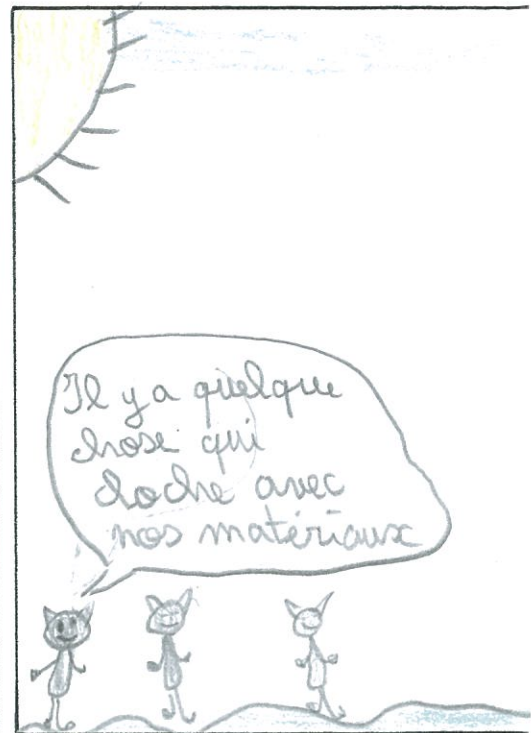 Il y a quelque
chose qui
cloche avec
nos matériaux